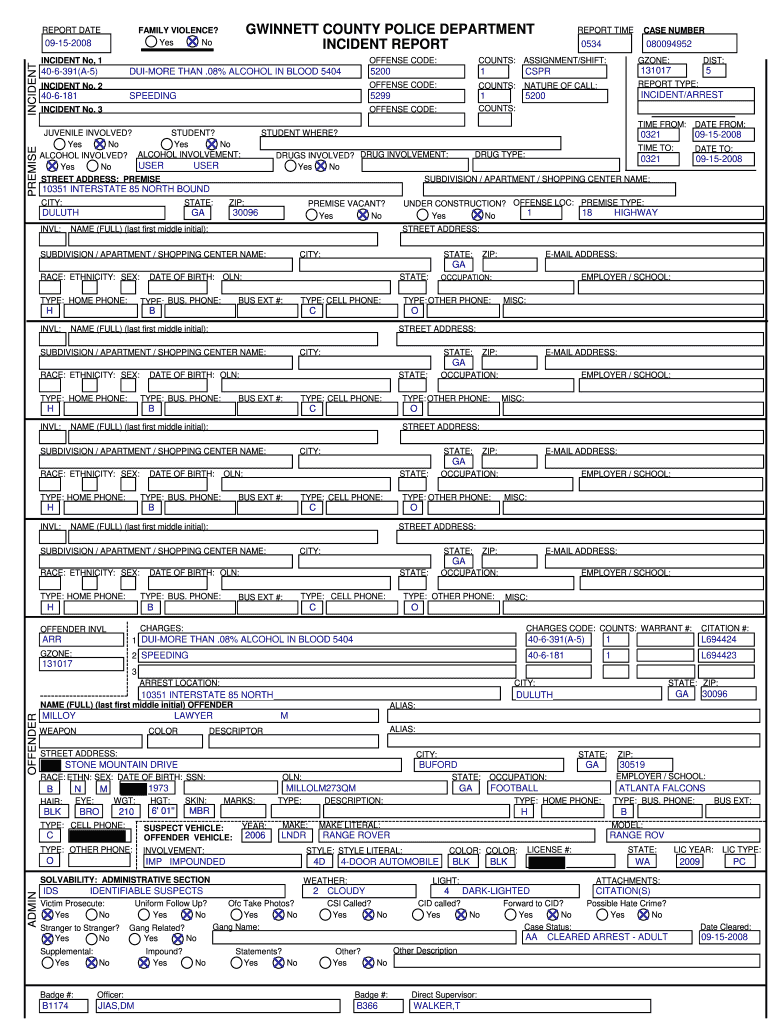 REPORT DATE FAMILY VIOLENCE? GWINNETT COUNTY POLICE DEPARTMENT REPORT TIME CASE NUMBER
09-15-2008 Yes No INCIDENT REPORT 0534 080094952
INCIDENT
INCIDENT No. 1 OFFENSE CODE: COUNTS: ASSIGNMENT/SHIFT: GZONE: DIST:
40-6-391(A-5) DUI-MORE THAN .08% ALCOHOL IN BLOOD 5404 5200 1 CSPR 131017 5
INCIDENT No. 2 OFFENSE CODE: COUNTS: NATURE OF CALL: REPORT TYPE:
40-6-181 SPEEDING 5299 1 5200 INCIDENT/ARREST
INCIDENT No. 3 OFFENSE CODE: COUNTS:
TIME FROM: DATE FROM:
0321 09-15-2008
PREMISE
JUVENILE INVOLVED? STUDENT? STUDENT WHERE?
Yes No Yes No
TIME TO: DATE TO:
0321 09-15-2008
ALCOHOL INVOLVED? ALCOHOL INVOLVEMENT: DRUGS INVOLVED? DRUG INVOLVEMENT: DRUG TYPE:
Yes No USER USER Yes No
STREET ADDRESS: PREMISE SUBDIVISION / APARTMENT / SHOPPING CENTER NAME:
10351 INTERSTATE 85 NORTH BOUND
CITY: STATE: ZIP: PREMISE VACANT? UNDER CONSTRUCTION? OFFENSE LOC: PREMISE TYPE:
DULUTH GA 30096 Yes No Yes No 1 18 HIGHWAY
INVL: NAME (FULL) (last first middle initial): STREET ADDRESS:
SUBDIVISION / APARTMENT / SHOPPING CENTER NAME: CITY: STATE: ZIP: E-MAIL ADDRESS:
GA
RACE: ETHNICITY: SEX: DATE OF BIRTH: OLN: STATE: OCCUPATION: EMPLOYER / SCHOOL:
TYPE: HOME PHONE: TYPE: BUS. PHONE: BUS EXT #: TYPE: CELL PHONE: TYPE: OTHER PHONE: MISC:
H B C O
INVL: NAME (FULL) (last first middle initial): STREET ADDRESS:
SUBDIVISION / APARTMENT / SHOPPING CENTER NAME: CITY: STATE: ZIP: E-MAIL ADDRESS:
GA
RACE: ETHNICITY: SEX: DATE OF BIRTH: OLN: STATE: OCCUPATION: EMPLOYER / SCHOOL:
TYPE: HOME PHONE: TYPE: BUS. PHONE: BUS EXT #: TYPE: CELL PHONE: TYPE: OTHER PHONE: MISC:
H B C O
INVL: NAME (FULL) (last first middle initial): STREET ADDRESS:
SUBDIVISION / APARTMENT / SHOPPING CENTER NAME: CITY: STATE: ZIP: E-MAIL ADDRESS:
GA
RACE: ETHNICITY: SEX: DATE OF BIRTH: OLN: STATE: OCCUPATION: EMPLOYER / SCHOOL:
TYPE: HOME PHONE: TYPE: BUS. PHONE: BUS EXT #: TYPE: CELL PHONE: TYPE: OTHER PHONE: MISC:
H B C O
INVL: NAME (FULL) (last first middle initial): STREET ADDRESS:
SUBDIVISION / APARTMENT / SHOPPING CENTER NAME: CITY: STATE: ZIP: E-MAIL ADDRESS:
GA
RACE: ETHNICITY: SEX: DATE OF BIRTH: OLN: STATE: OCCUPATION: EMPLOYER / SCHOOL:
TYPE: HOME PHONE: TYPE: BUS. PHONE: BUS EXT #: TYPE: CELL PHONE: TYPE: OTHER PHONE: MISC:
H B C O
OFFENDER
OFFENDER INVL CHARGES: CHARGES CODE: COUNTS: WARRANT #: CITATION #:
ARR 1 DUI-MORE THAN .08% ALCOHOL IN BLOOD 5404 40-6-391(A-5) 1 L694424
GZONE: 2 SPEEDING 40-6-181 1 L694423
131017 3
ARREST LOCATION: CITY: STATE: ZIP:
10351 INTERSTATE 85 NORTH DULUTH GA 30096
NAME (FULL) (last first middle initial) OFFENDER ALIAS:
MILLOY LAWYER M
WEAPON COLOR DESCRIPTOR ALIAS:
STREET ADDRESS: CITY: STATE: ZIP:
STONE MOUNTAIN DRIVE BUFORD GA 30519
RACE: ETHN: SEX: DATE OF BIRTH: SSN: OLN: STATE: OCCUPATION: EMPLOYER / SCHOOL:
B N M 1973 MILLOLM273QM GA FOOTBALL ATLANTA FALCONS
HAIR: EYE: WGT: HGT: SKIN: MARKS: TYPE: DESCRIPTION: TYPE: HOME PHONE: TYPE: BUS. PHONE: BUS EXT:
BLK BRO 210 6' 01" MBR H B
TYPE: CELL PHONE: SUSPECT VEHICLE: YEAR: MAKE: MAKE LITERAL: MODEL:
C OFFENDER VEHICLE: 2006 LNDR RANGE ROVER RANGE ROV
TYPE: OTHER PHONE: INVOLVEMENT: STYLE: STYLE LITERAL: COLOR: COLOR: LICENSE #: STATE: LIC YEAR: LIC TYPE:
O IMP IMPOUNDED 4D 4-DOOR AUTOMOBILE BLK BLK WA 2009 PC
ADMIN
SOLVABILITY: ADMINISTRATIVE SECTION WEATHER: LIGHT: ATTACHMENTS:
IDS IDENTIFIABLE SUSPECTS 2 CLOUDY 4 DARK-LIGHTED CITATION(S)
Victim Prosecute: Uniform Follow Up? Ofc Take Photos? CSI Called? CID called? Forward to CID? Possible Hate Crime?
Yes No Yes No Yes No Yes No Yes No Yes No Yes No
Stranger to Stranger? Gang Related? Gang Name: Case Status: Date Cleared:
Yes No Yes No AA CLEARED ARREST - ADULT 09-15-2008
Supplemental: Impound? Statements? Other? Other Description
Yes No Yes No Yes No Yes No
Badge #: Officer: Badge #: Direct Supervisor:
B1174 JIAS,DM B366 WALKER,T